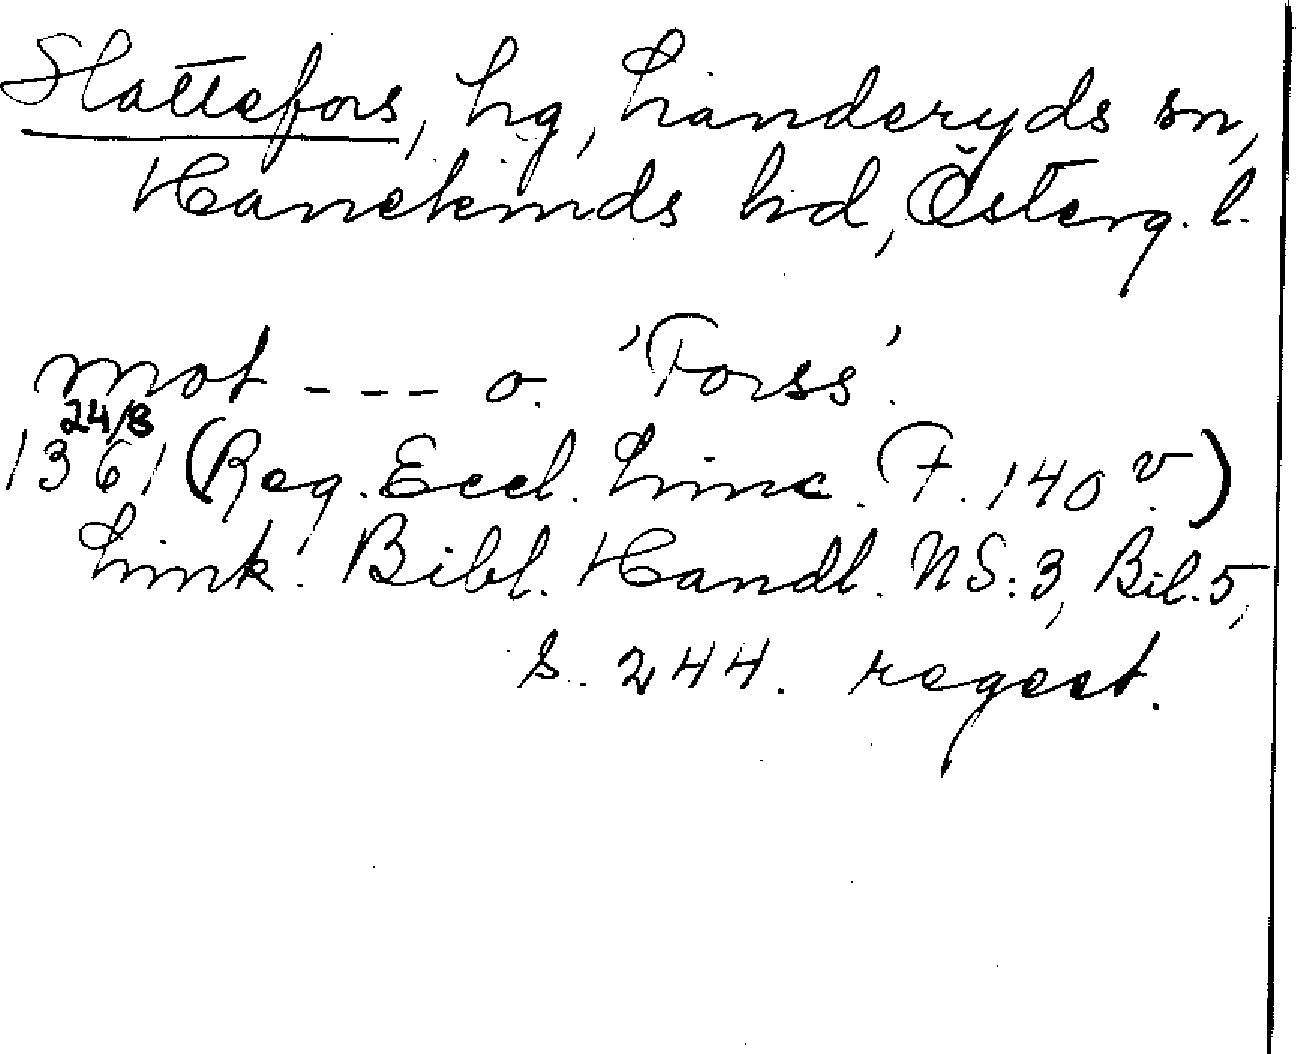 Slattefors, hg, Landeryds sn,
Hanekinds hd, Österg. l.
mot - - - o. 'Forss'.
24/8
1361 (Reg. Eccl. Linc. F. 140 v.)
Link. Bibl. Handl. NS: 3, Bil. 5,
s. 244. regest.